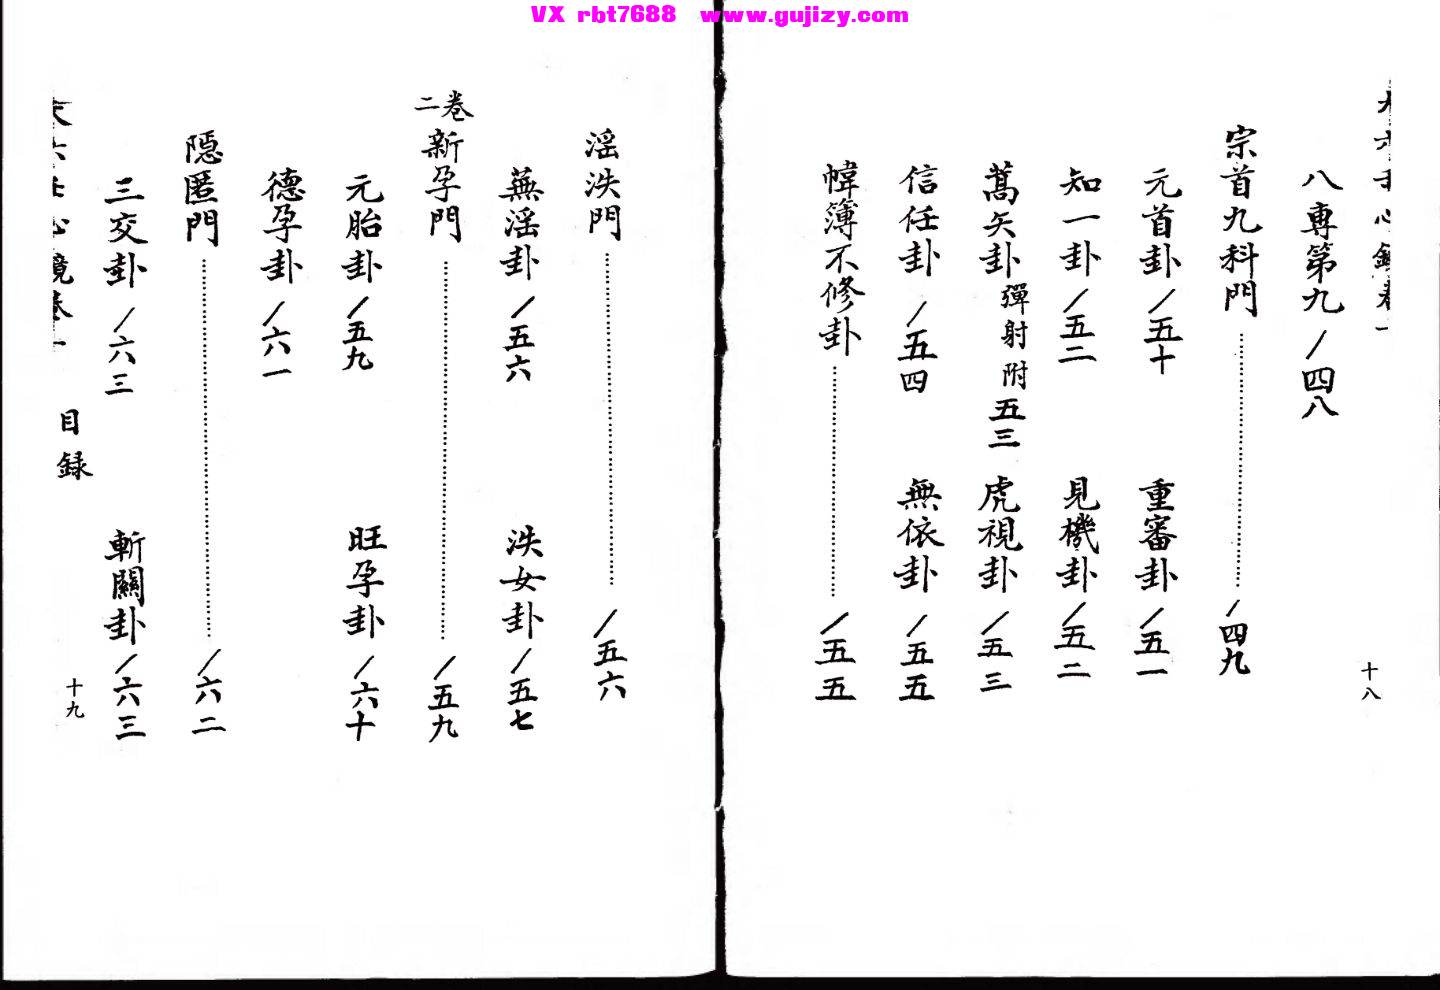 VX rbt7688 www.gujizy.com
八專第九/四八
宗首九科門/四九
元首卦/五十 重審卦/五一
知一卦/五二 見機卦/五二
蒿矢卦彈射附五三 虎視卦/五三
信任卦/五四 無依卦/五五
幃簿不修卦/五五
十八
淫泆門/五六
蕪淫卦/五六 泆女卦/五七
卷二
新孕門/五九
元胎卦/五九 旺孕卦/六十
德孕卦/六一
隱匿門/六二
三交卦/六三 斬關卦/六三
目録
十九